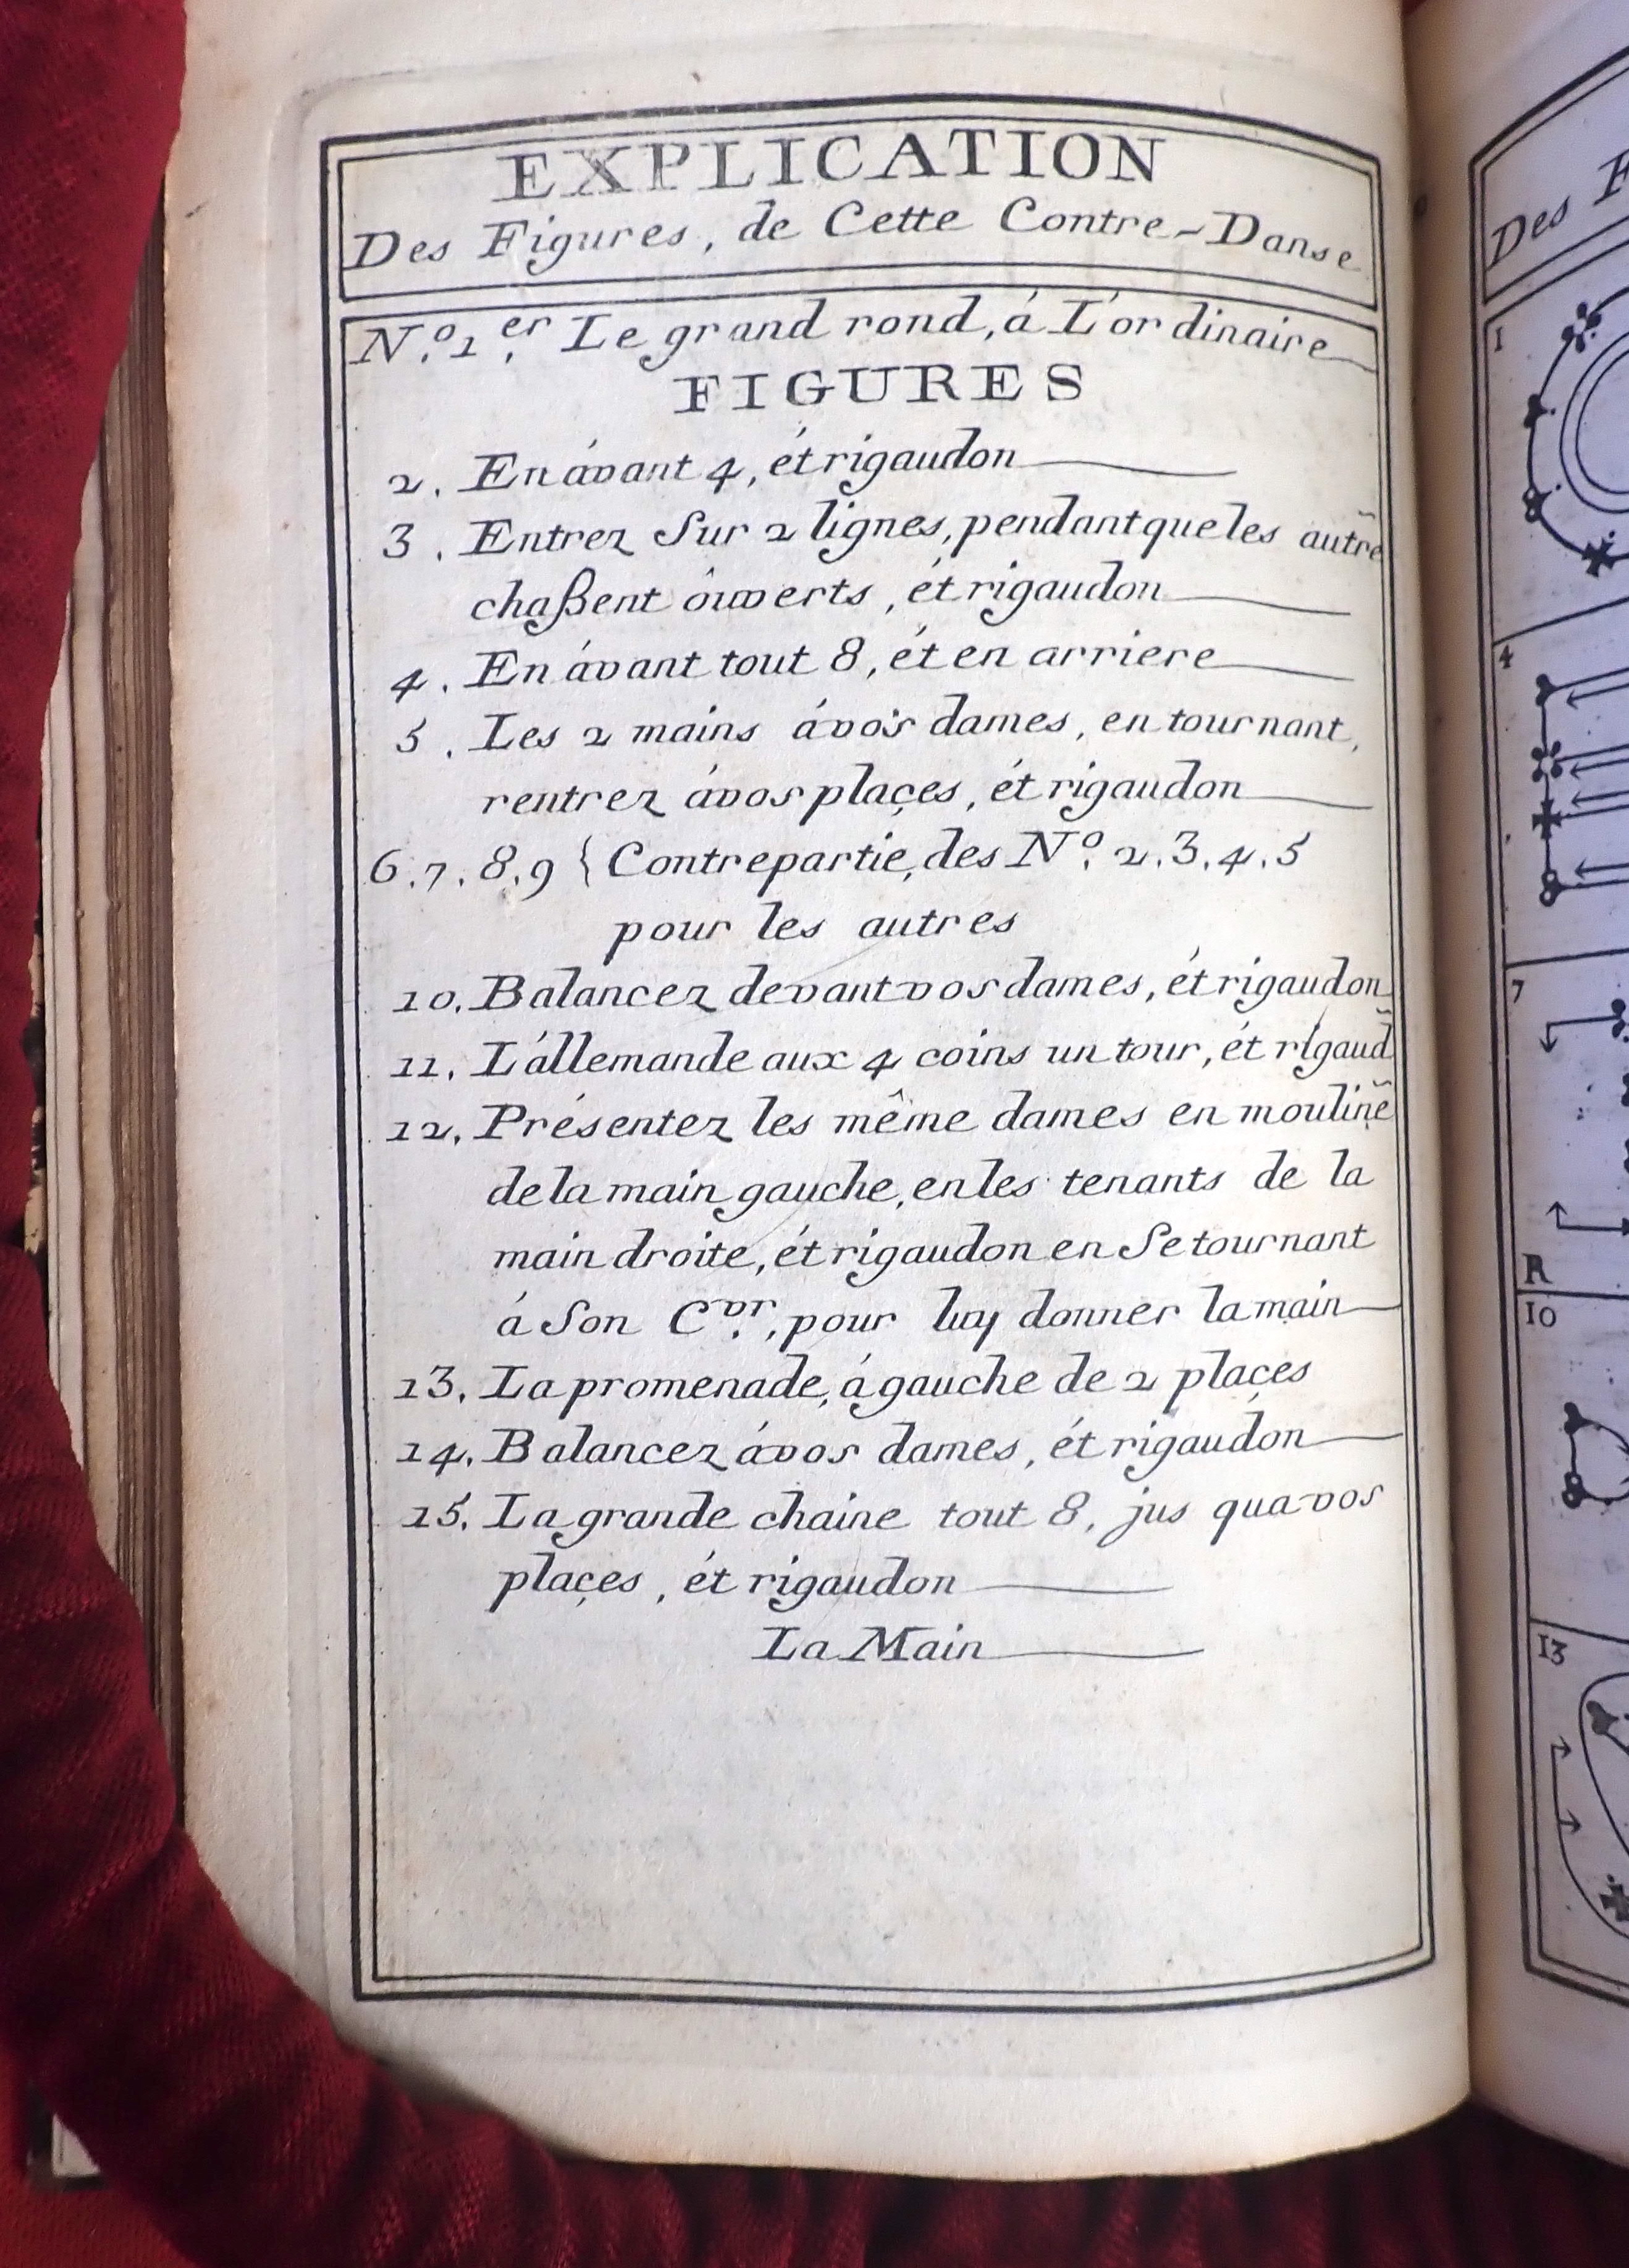 EXPLICATION
Des Figures, de Cette Contre-Danse
N.º 1.er Le grand rond, á L'ordinaire
FIGURES
2. En ávant 4, ét rigaudon
3. Entrez Sur 2 lignes, pendant que les autrẽ
chaßent ôuverts, ét rigaudon
4. En ávant tout 8, ét en arriere
5. Les 2 mains á vos dames, en tournant,
rentrez á vos plaçes, ét rigaudon
6.7.8.9 { Contrepartie, des N.º 2.3.4.5
pour les autres
10. Balancez devant vos dames, ét rigaudon
11. L'állemande aux 4 coins un tour, ét rigaud̃
12. Présentez les même dames en moulinẽ
de la main gauche, en les tenants de la
main droite, ét rigaudon en Se tournant
á Son C.vr, pour luy donner la main
13. La promenade, á gauche de 2 plaçes
14. Balancez á vos dames, ét rigaudon
15. La grande chaine tout 8, jus qua vos
plaçes, ét rigaudon
La Main
Des F
1
4
7
R
10
13